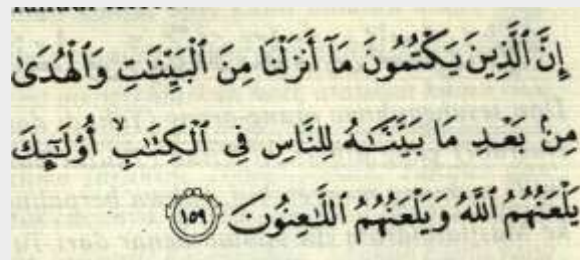 إِنَّ ٱلَّذِينَ يَكْتُمُونَ مَآ أَنزَلْنَا مِنَ ٱلْبَيِّنَـٰتِ وَٱلْهُدَىٰ
مِنۢ بَعْدِ مَا بَيَّنَّـٰهُ لِلنَّاسِ فِى ٱلْكِتَـٰبِۙ أُو۟لَـٰٓئِكَ
يَلْعَنُهُمُ ٱللَّهُ وَيَلْعَنُهُمُ ٱللَّـٰعِنُونَ ١٥٩